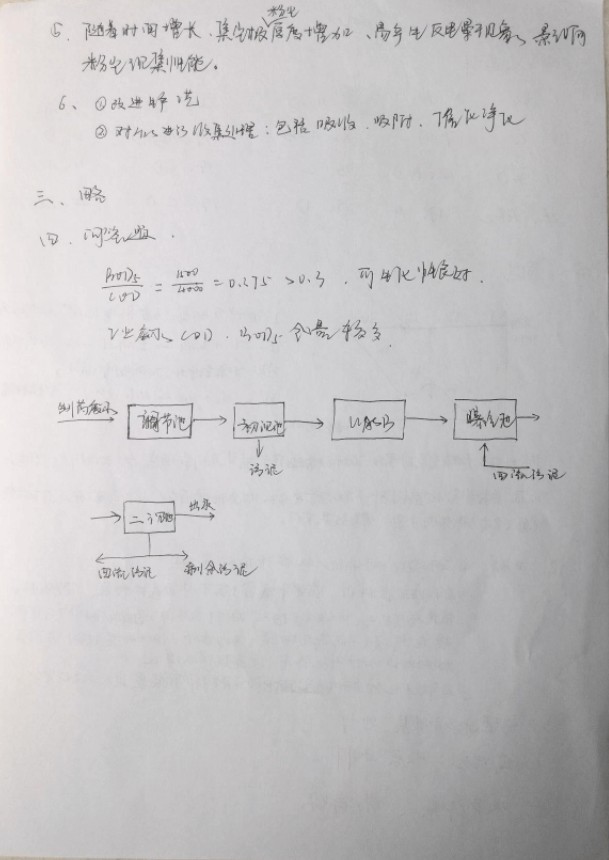 粉尘
5、随着时间增长，集尘极厚度增加，易产生反电晕现象，影响
粉尘收集性能。
6、①改进
②对 进行收集处理：包括吸收、吸附、催化净化
三、略
四、问答题.
BOD₅/COD = 1500/4000 = 0.375 > 0.3，可生化性良好.
COD、BOD₅含量较多.
制药废水 调节池 初沉池 UASB 曝气池
污泥 回流污泥
二沉池 出水
回流污泥 剩余污泥